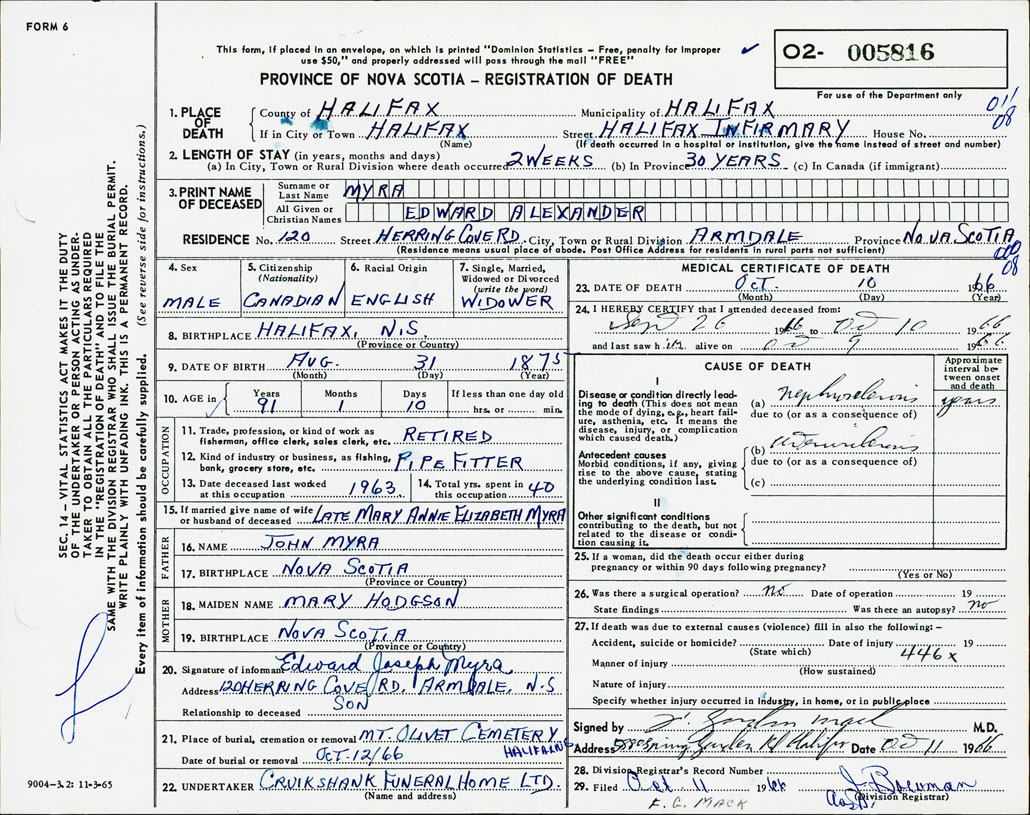 FORM 6
This form, if placed in an envelope, on which is printed "Dominion Statistics – Free, penalty for improper
use $50," and properly addressed will pass through the mail "FREE"
O2- 005816
PROVINCE OF NOVA SCOTIA – REGISTRATION OF DEATH
For use of the Department only
011
08
1. PLACE OF DEATH
County of HALIFAX Municipality of HALIFAX
If in City or Town HALIFAX Street HALIFAX INFIRMARY House No.
(Name) (If death occurred in a hospital or institution, give the name instead of street and number)
2. LENGTH OF STAY (in years, months and days)
(a) In City, Town or Rural Division where death occurred 2 WEEKS (b) In Province 30 YEARS (c) In Canada (if immigrant)
3. PRINT NAME OF DECEASED
Surname or Last Name MYRA
All Given or Christian Names EDWARD ALEXANDER
RESIDENCE No. 120 Street HERRING COVE RD. City, Town or Rural Division ARMDALE Province NOVA SCOTIA
(Residence means usual place of abode. Post Office Address for residents in rural parts not sufficient)
08
4. Sex MALE
5. Citizenship (Nationality) CANADIAN
6. Racial Origin ENGLISH
7. Single, Married, Widowed or Divorced (write the word) WIDOWER
8. BIRTHPLACE HALIFAX, N.S.
(Province or Country)
9. DATE OF BIRTH AUG. 31 1875
(Month) (Day) (Year)
10. AGE in Years 91 Months 1 Days 10 If less than one day old
hrs. or min.
OCCUPATION
11. Trade, profession, or kind of work as
fisherman, office clerk, sales clerk, etc. RETIRED
12. Kind of industry or business, as fishing,
bank, grocery store, etc. PIPE FITTER
13. Date deceased last worked
at this occupation 1963
14. Total yrs. spent in
this occupation 40
15. If married give name of wife
or husband of deceased LATE MARY ANNIE ELIZABETH MYRA
FATHER
16. NAME JOHN MYRA
17. BIRTHPLACE NOVA SCOTIA
(Province or Country)
MOTHER
18. MAIDEN NAME MARY HODGSON
19. BIRTHPLACE NOVA SCOTIA
(Province or Country)
20. Signature of informant Edward Joseph Myra
Address 120 HERRING COVE RD. ARMDALE, N.S
Relationship to deceased SON
21. Place of burial, cremation or removal MT. OLIVET CEMETERY
Date of burial or removal OCT. 12/66 HALIFAX NS
22. UNDERTAKER CRUIKSHANK FUNERAL HOME LTD.
(Name and address)
MEDICAL CERTIFICATE OF DEATH
23. DATE OF DEATH OCT. 10 1966
(Month) (Day) (Year)
24. I HEREBY CERTIFY that I attended deceased from:
Sept 26 1966 to Oct 10 1966
and last saw him alive on Oct 9 1966
CAUSE OF DEATH
Approximate interval between onset and death
I
Disease or condition directly leading to death (This does not mean the mode of dying, e.g., heart failure, asthenia, etc. It means the disease, injury, or complication which caused death.)
(a) nephrosclerosis years
due to (or as a consequence of)
Antecedent causes
Morbid conditions, if any, giving rise to the above cause, stating the underlying condition last.
(b)
due to (or as a consequence of)
(c)
II
Other significant conditions
contributing to the death, but not related to the disease or condition causing it.
25. If a woman, did the death occur either during
pregnancy or within 90 days following pregnancy?
(Yes or No)
26. Was there a surgical operation? no Date of operation 19
State findings Was there an autopsy? no
27. If death was due to external causes (violence) fill in also the following: –
Accident, suicide or homicide? Date of injury 19
(State which) 446x
Manner of injury
(How sustained)
Nature of injury
Specify whether injury occurred in industry, in home, or in public place
Signed by M.D.
Address Spring Garden Rd Halifax Date Oct 11 1966
28. Division Registrar's Record Number
29. Filed Oct 11 1966 J. Bowman
(Division Registrar)
E. G. MACK
SEC. 14 – VITAL STATISTICS ACT MAKES IT THE DUTY
OF THE UNDERTAKER OR PERSON ACTING AS UNDER-
TAKER TO OBTAIN ALL THE PARTICULARS REQUIRED
IN THE "REGISTRATION OF DEATH" AND TO FILE THE
SAME WITH THE DIVISION REGISTRAR WHO SHALL ISSUE THE BURIAL PERMIT.
WRITE PLAINLY WITH UNFADING INK. THIS IS A PERMANENT RECORD.
Every item of information should be carefully supplied. (See reverse side for instructions.)
9004-3.2: 11-3-65